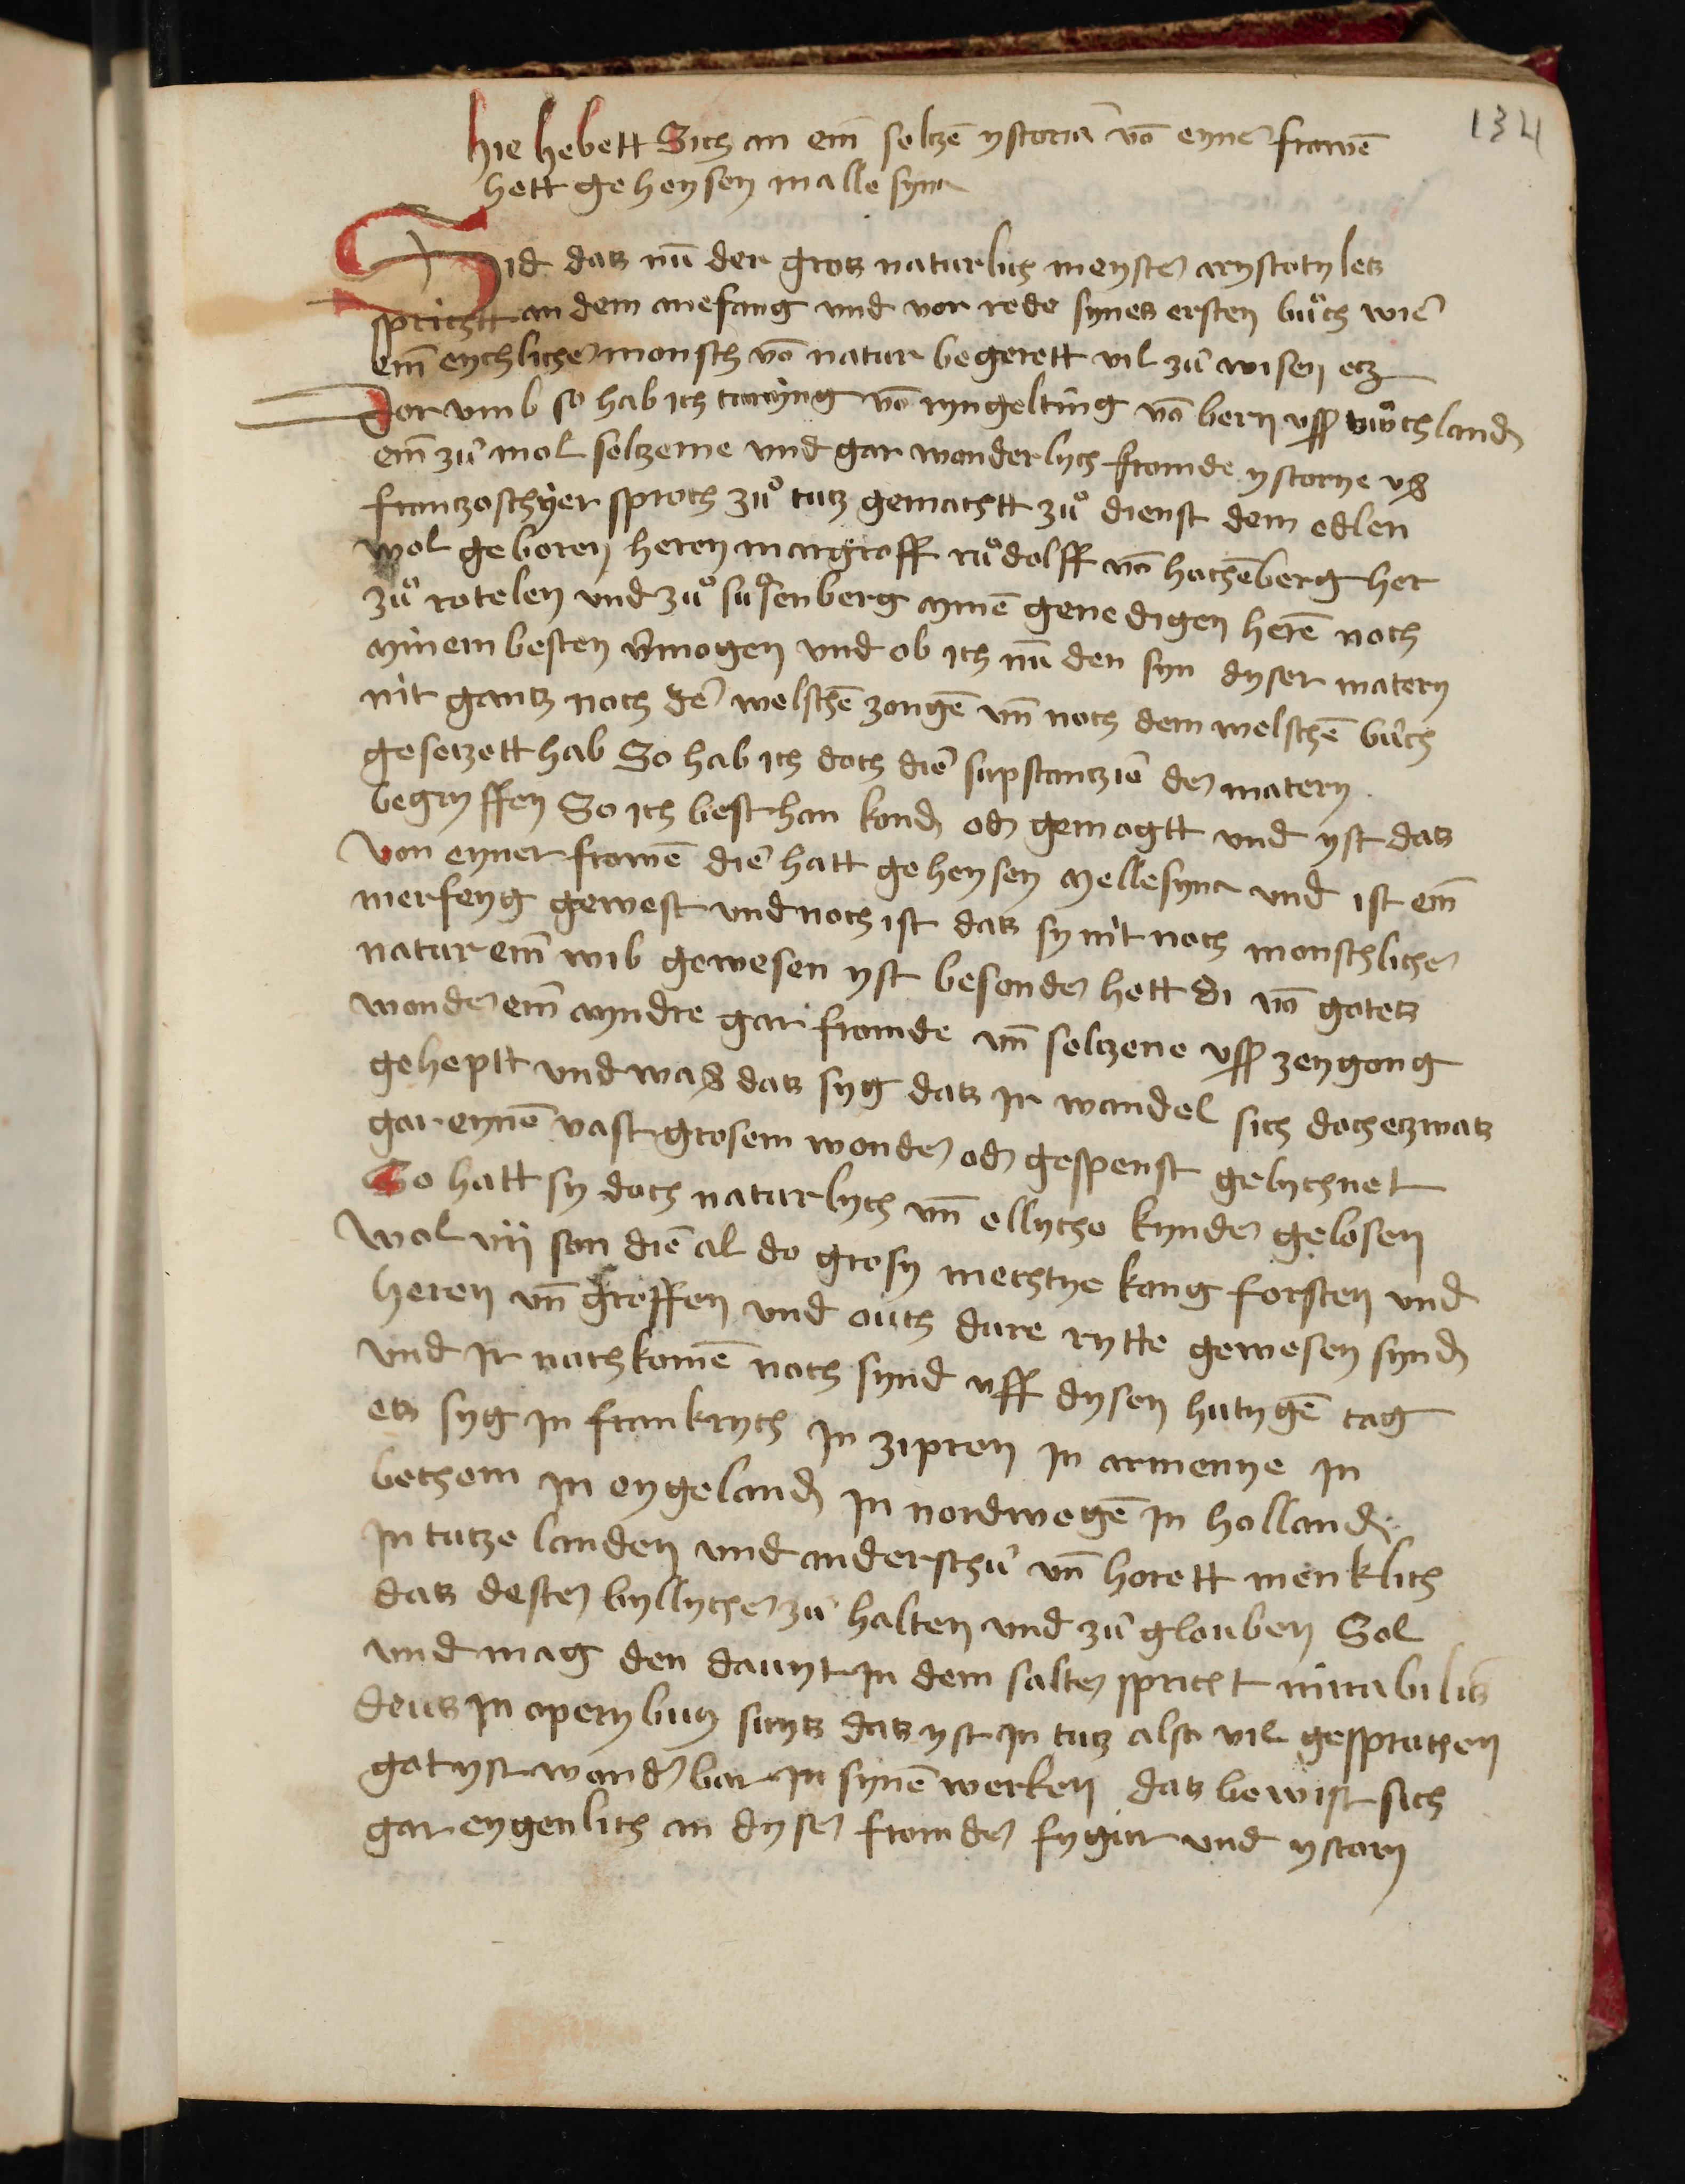 134
hie hebett Sich an ein̄ selczē ystoria vō eyner frowē
hett geheysen mallesyna
Sid das nū der gros naturlich meyster arystotyles
sprichtt an dem anefang vnd vor rede synes ersten bůch wie
ein̄ eychlicher monsch vō natur begerett vil zů wisen etz
Dor vmb so hab ich turyng vō ryngelting vō bern vss vͦchtland
ein̄ zů mol selczeme vnd gar wonderlych fromde ystorye vß
franczoschyer sproch zů tutz gemachtt zů dienst dem edlen
wol geboren heren margroff růdolff vō hochēberg her
zů rotelen vnd zů susenberg mynē genedigen herē noch
mynem besten v̄mogen vnd ob ich nū den syn dyser matery
nit gantz noch der welschē zongē vn̄ noch dem welschē bůch
gesetzett hab So hab ich doch die supstanczie der matery
begryffen So ich best han kond oder gemogtt vnd yst das
von eyner frowē die hatt geheysen mellesyna vnd ist ein̄
merfeyg gewest vnd noch ist das sy nit noch monschlicher
natur ein̄ wib gewesen yst besonder hett si vō gotes
wonder ein̄ andre gar fromde vn̄ selczene vss zeygong
geheptt vnd waß das syg das ir wandel sich doch etzwas
gar eynē vast grosem wonder oder gespenst gelychnet
So hatt sy doch naturlych vn̄ ellyche kynder gelosen
wol vij son die al do grosy mechtye kong forsten vnd
heren vn̄ groffen vnd ouch dure rytte gewesen synd
vnd ir nachkomē noch synd vff dysen hutygē tag
es syg in frankrych in zipren in armenye in
bechem in eygeland in nordwegē in holland
in tutze landen vnd anderschů vn̄ horett menklich
das dester byllycher zů halten vnd zů glouben Sol
vnd mag den dauyt in dem salter spricht mirabilis
deus in operybus suys das yst in tutz also vil gesprochen
got yst wonderbar in synē werken das bewist sich
gar eygenlich an dyser fromder fygur vnd ystory